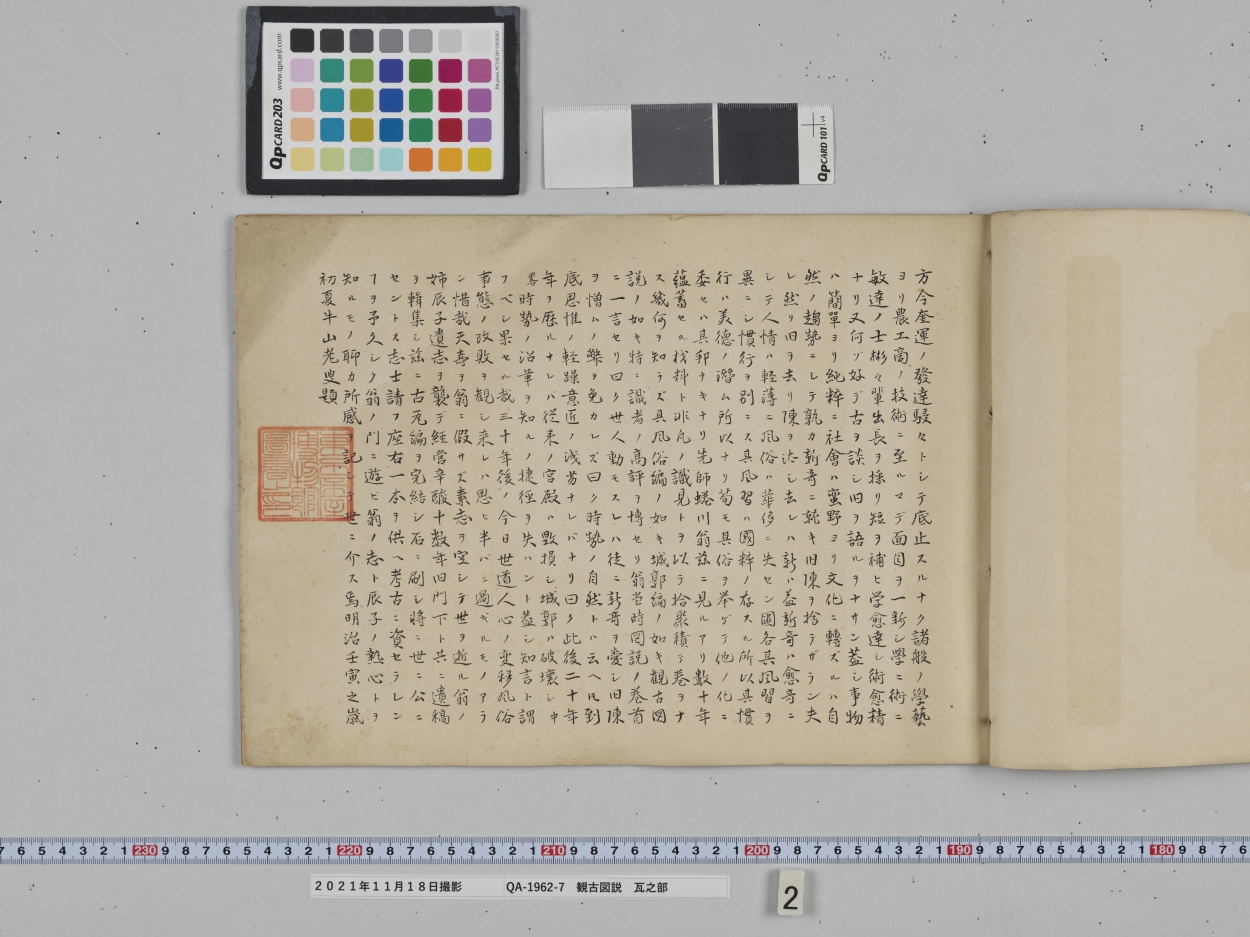 www.qpcard.com
QpCARD 203
QpCARD 101 v4
方今奎運ノ發達駸々トシテ底止スルナク諸般ノ學藝
ヨリ農工商ノ技術ニ至ルマデ面目ヲ一新シ學ニ術ニ
敏達ノ士彬々輩出長ヲ採リ短ヲ補ヒ学愈達シ術愈精
ナリ又何ゾ好デ古ヲ談シ旧ヲ語ルヲナサン蓋シ事物
ハ簡單ヨリ純粋ニ社會ハ蛮野ヨリ文化ニ轉ズルハ自
然ノ趨勢ニシテ孰カ新奇ニ就キ旧陳ヲ捨テザラン夫
レ然リ旧ヲ去リ陳ヲ法シ去レハ新ハ益新奇ハ愈奇ニ
シテ人情ハ軽薄ニ風俗ハ華侈ニ失セン國各其風習ヲ
異ニシ慣行ヲ別ニス其風習ハ國粋ノ存スル所以其慣
行ハ美德ノ潜ム所以ナリ苟モ其俗ヲ挙ゲテ他ノ化ニ
委セハ其邦ナキナリ先師蜷川翁茲ニ見ルアリ数十年
蘊蓄セル材料ト非凡ノ識見トヲ以テ拾聚積テ巻ヲナ
ス幾何ヲ知ラズ其風俗編ノ如キ城郭編ノ如キ観古図
説ノ如キ特ニ識者ノ高評ヲ博セリ翁甞時図説ノ巻首
ニ一言セリ曰ク世人動モスレハ徒ニ新奇ヲ愛シ旧陳
ヲ憎ムノ弊ヲ免カレズ曰ク時勢ノ自然トハ云ヘ𪜈到
底思惟ノ軽躁意匠ノ浅劣ナレバナリ曰ク此後二十年
年ヲ歴ルナレバ従来ノ宮殿ハ毀損シ城郭ハ破壊シ中
畧時勢ノ沿革ヲ知ルノ捷徑ヲ失ハント蓋シ知言ト謂
フベシ果セル哉三十年後ノ今日世道人心ノ変移風俗
事態ノ改敗ヲ観シ来レハ思ヒ半バニ過ギルモノアラ
ン惜哉天壽ヲ翁ニ假サズ素志ヲ空シテ世ヲ逝ル翁ノ
姉辰子遺志ヲ襲デ經営辛酸十数年旧門下ト共ニ遺稿
ヲ輯集シ茲ニ古瓦編ヲ完結シ石ニ刷シ將ニ世ニ公ニ
セントス志士請フ座右一本ヲ供ヘ考古ニ資セラレン
ヿヲ予久シク翁ノ門ニ遊ビ翁ノ志ト辰子ノ熱心トヲ
知ルモノ聊カ所感ヲ記シテ世ニ介ス爲明治壬寅之歳
初夏牛山老叟題
2021年11月18日撮影 QA-1962-7 観古図説 瓦之部
2